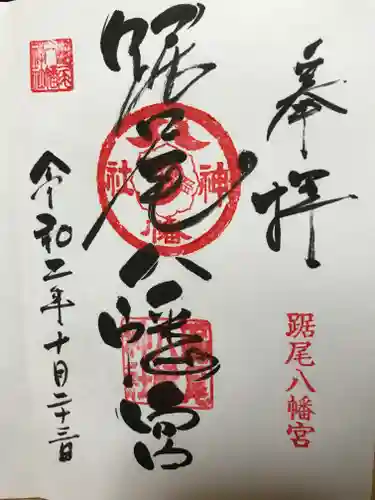 奉拝
踞尾八幡宮
踞尾八幡宮
令和二年十月二十三日
八幡神社